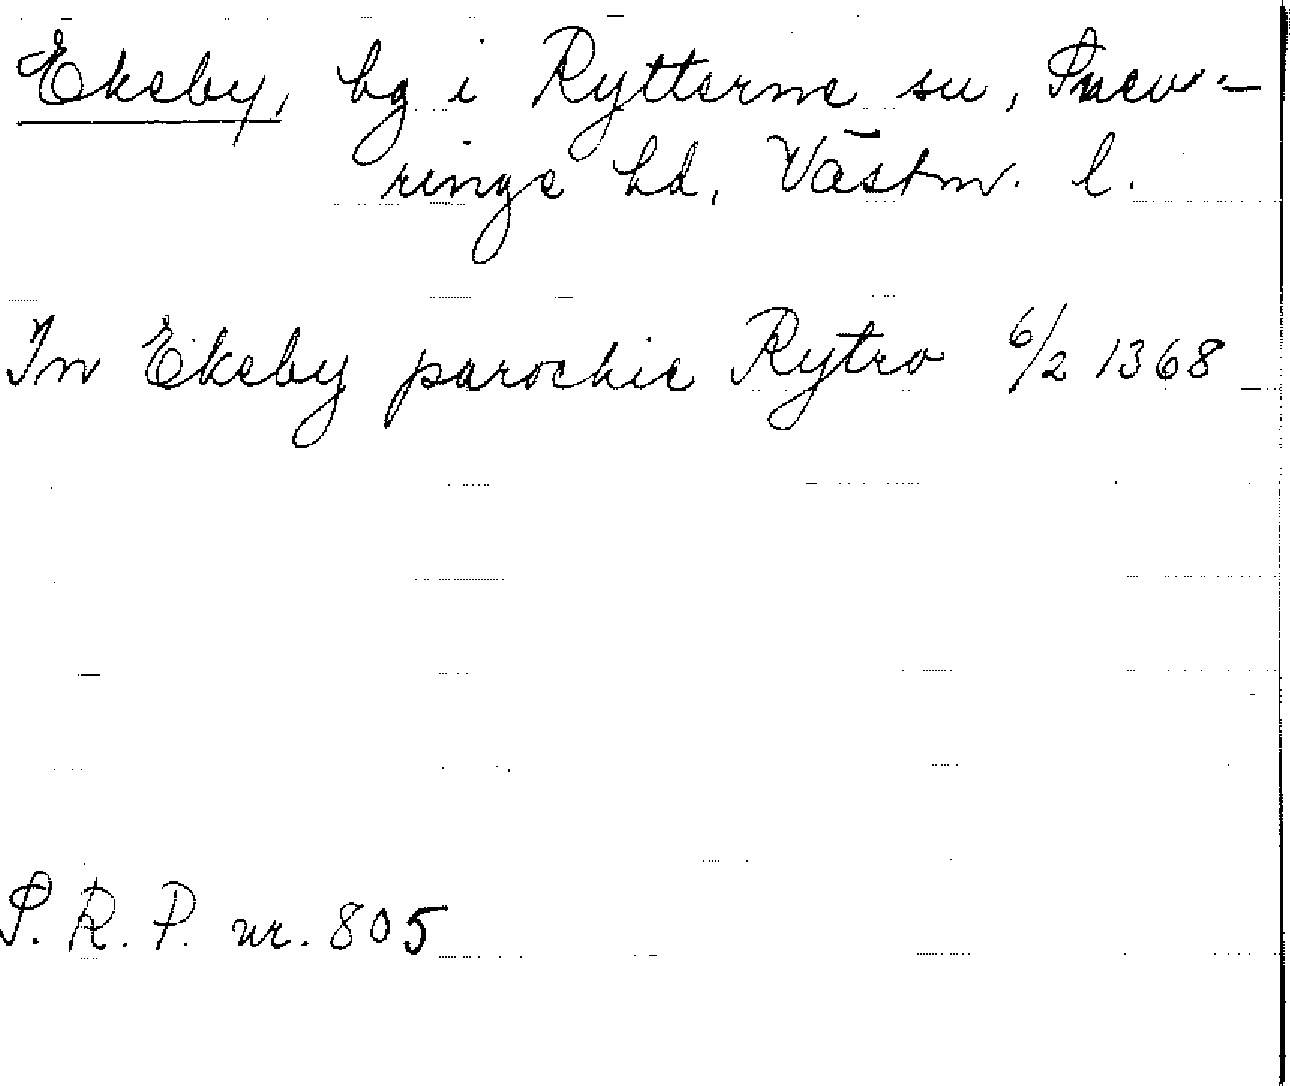 Ekeby, by i Rytterne sn, Snev-
ringe hd, Västm. l.
In Ekeby parochie Rytro 6/2 1368
S. R. P. nr. 805